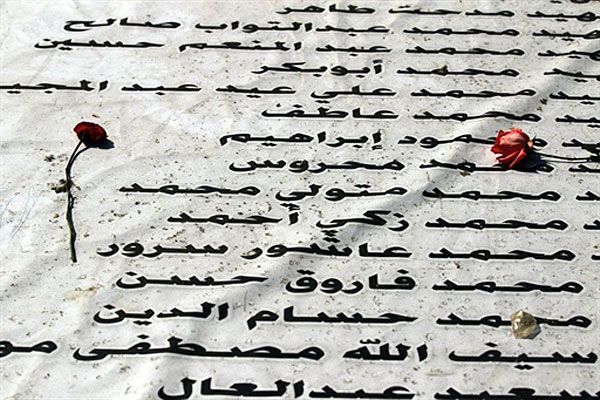 مدحت طاهر
محمد عبدالتواب صالح
محمد عبد المنعم حسين
محمد أبوبكر
محمد علي عيد عبد المجيد
محمد عاطف
محمود إبراهيم
محمد محروس
محمد متولي محمد
محمد زكي أحمد
محمد عاشور سرور
محمد فاروق حسن
محمد حسام الدين
سيف الله مصطفى
سعيد عبدالعال